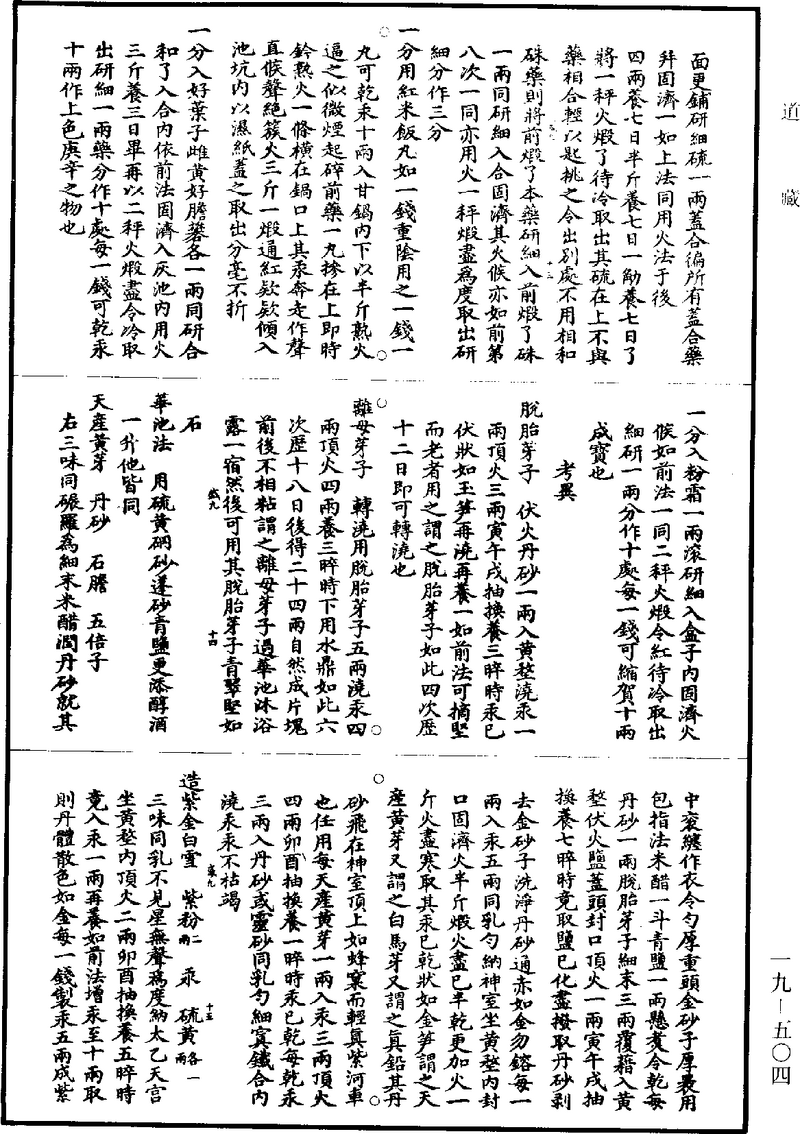 道藏
面更鋪研細硫一兩蓋合徧所有蓋合藥
并固濟一如上法同用火法于後
四兩養七日半斤養七日一觔養七日了
將一秤火煅了待冷取出其硫在上不與
藥相合輕以匙挑之令出別處不用相和
硃藥則將前煅了本藥研細入前煅了硃
一兩同研細入合固濟其火候亦如前第
八次一同亦用火一秤煅盡為度取出研
細分作三分
一分用紅米飯丸如一錢重陰用之一錢一
丸可乾汞十兩入甘鍋內下以半斤熟火
逼之似微煙起碎前藥一丸摻在上即時
鈐熟火一條橫在鍋口上其汞奔走作聲
直候聲絕簇火三斤一煅通紅款款傾入
池坑內以濕紙蓋之取出分毫不折
一分入好葉子雌黃好膽礬各一兩同研合
和了入合內依前法固濟入灰池內用火
三斤養三日畢再以二秤火煅盡令冷取
出研細一兩藥分作十處每一錢可乾汞
十兩作上色庚辛之物也
一分入粉霜一兩滾研細入盒子內固濟火
候如前法一同二秤火煅令紅待冷取出
細研一兩分作十處每一錢可縮賀十兩
成寶也
考異
脫胎芽子　伏火丹砂一兩入黃墼澆汞一
兩頂火三兩寅午戌抽換養三晬時汞已
伏狀如玉笋再澆再養一如前法可摘堅
而老者用之謂之脫胎芽子如此四次歷
十二日即可轉澆也
離母芽子　轉澆用脫胎芽子五兩澆汞四
兩頂火四兩養三晬時下用水鼎如此六
次歷十八日後得二十四兩自然成片塊
前後不相粘謂之離母芽子過華池沐浴
露一宿然後可用其脫胎芽子青翠堅如
石
華池法　用硫黃硇砂蓬砂青鹽更添醇酒
一升他皆同
天產黃芽　丹砂　石膽　五倍子
右三味同碾羅為細末米醋潤丹砂就其
中衮纏作衣令勻厚重頭金砂子厚裹用
包指法米醋一斗青鹽一兩懸煮令乾每
丹砂一兩脫胎芽子細末三兩覆藉入黃
墼伏火鹽蓋頭封口頂火一兩寅午戌抽
換養七晬時竟取鹽已化盡撥取丹砂剝
去金砂子洗淨丹砂通赤如金勿鎔每一
兩入汞五兩同乳勻納神室坐黃墼內封
口固濟火半斤煅火盡已半乾更加火一
斤火盡寒取其汞已乾狀如金笋謂之天
產黃芽又謂之白馬芽又謂之真鉛其丹
砂飛在神室頂上如蜂窠而輕真紫河車
也任用每天產黃芽一兩入汞三兩頂火
四兩卯酉抽換養一晬時汞已乾每乾汞
三兩入丹砂或靈砂同乳勻細寘鐵合內
澆汞汞不枯竭
造紫金白雪　紫粉二兩　汞　硫黃各一兩
三味同乳不見星無聲為度納太乙天宮
坐黃墼內頂火二兩卯酉抽換養五晬時
竟入汞一兩再養如前法增汞至十兩取
則丹體散色如金每一錢製汞五兩成紫
一九—五〇四